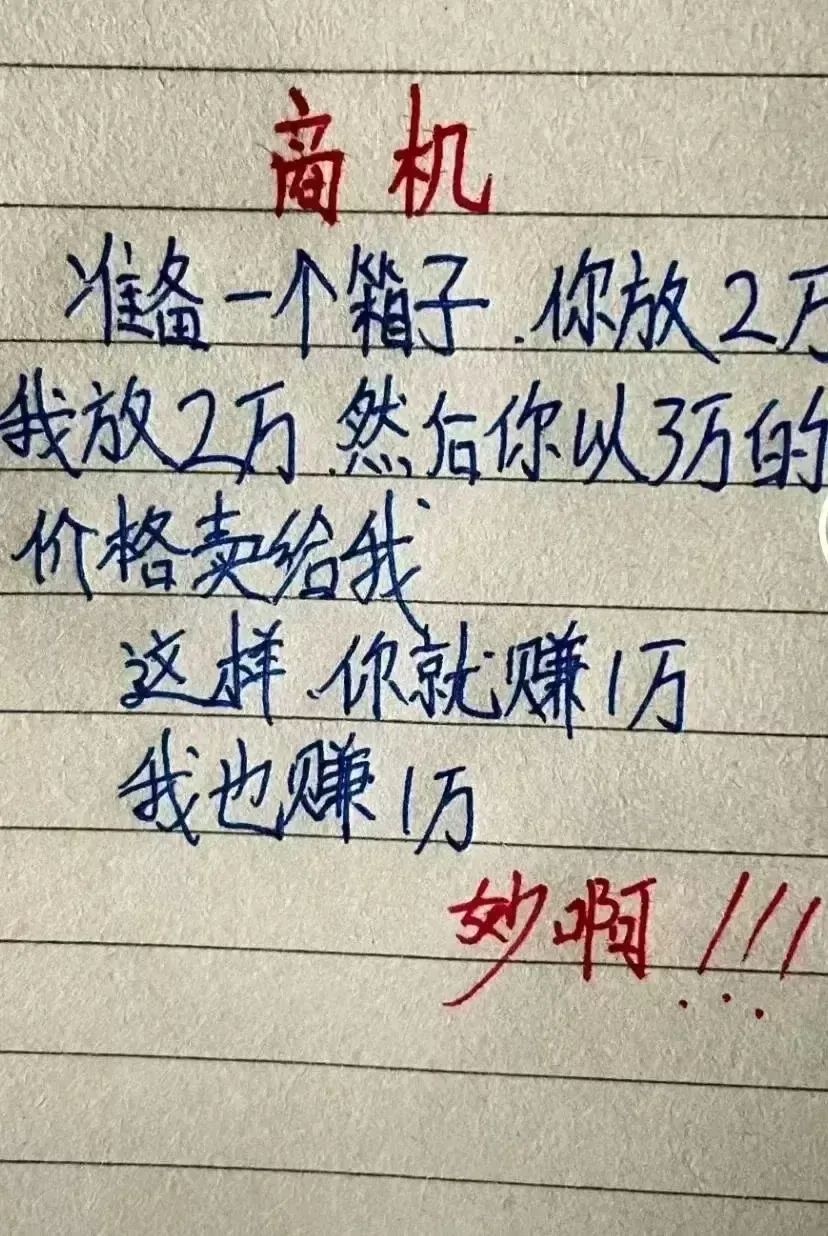 商机
准备一个箱子.你放2万
我放2万.然后你以3万的
价格卖给我
这样.你就赚1万
我也赚1万
妙啊!!!